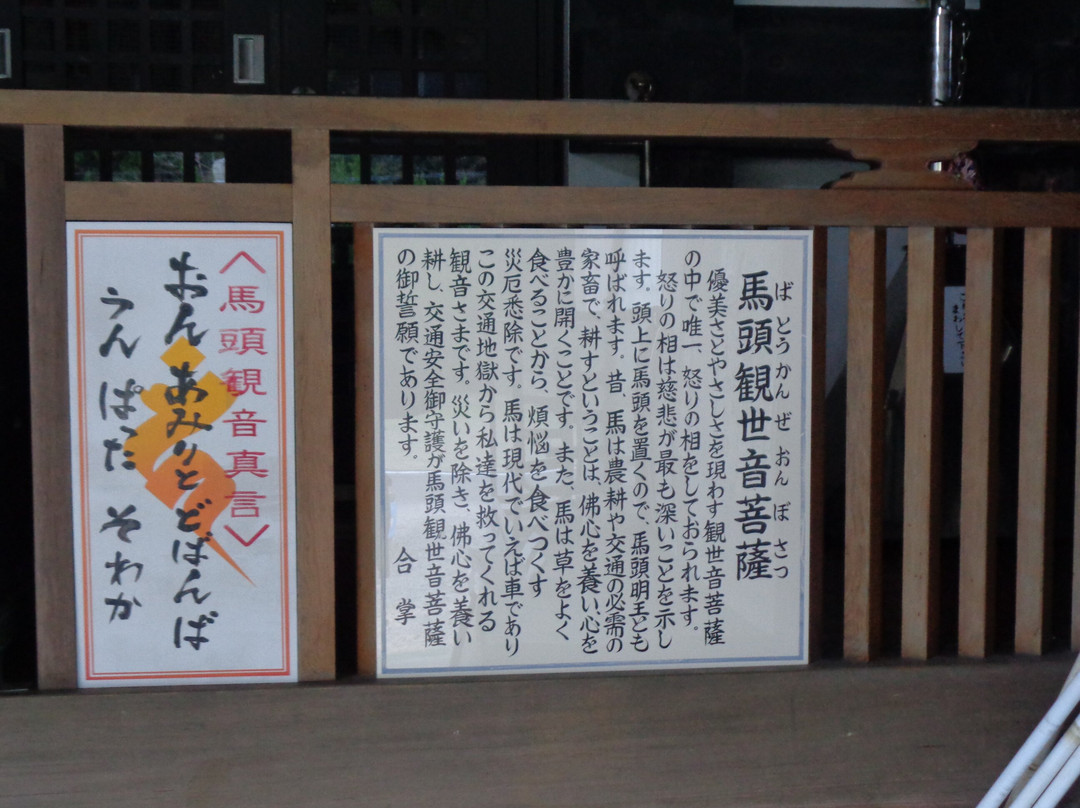 ばとうかんぜおんぼさつ
馬頭観世音菩薩
優美さとやさしさを現わす観世音菩薩
の中で唯一、怒りの相をしておられます。
怒りの相は慈悲が最も深いことを示し
ます。頭上に馬頭を置くので、馬頭明王とも
呼ばれます。昔、馬は農耕や交通の必需の
家畜で、耕すということは、佛心を養い、心を
豊かに開くことです。また、馬は草をよく
食べることから、煩悩を食べつくす
災厄悉除です。馬は現代でいえば車であり
この交通地獄から私達を救ってくれる
観音さまです。災いを除き、佛心を養い
耕し、交通安全御守護が馬頭観世音菩薩
の御誓願であります。
合掌
〈馬頭観音真言〉
おん あみりとどばんば
うん ぱった そわか